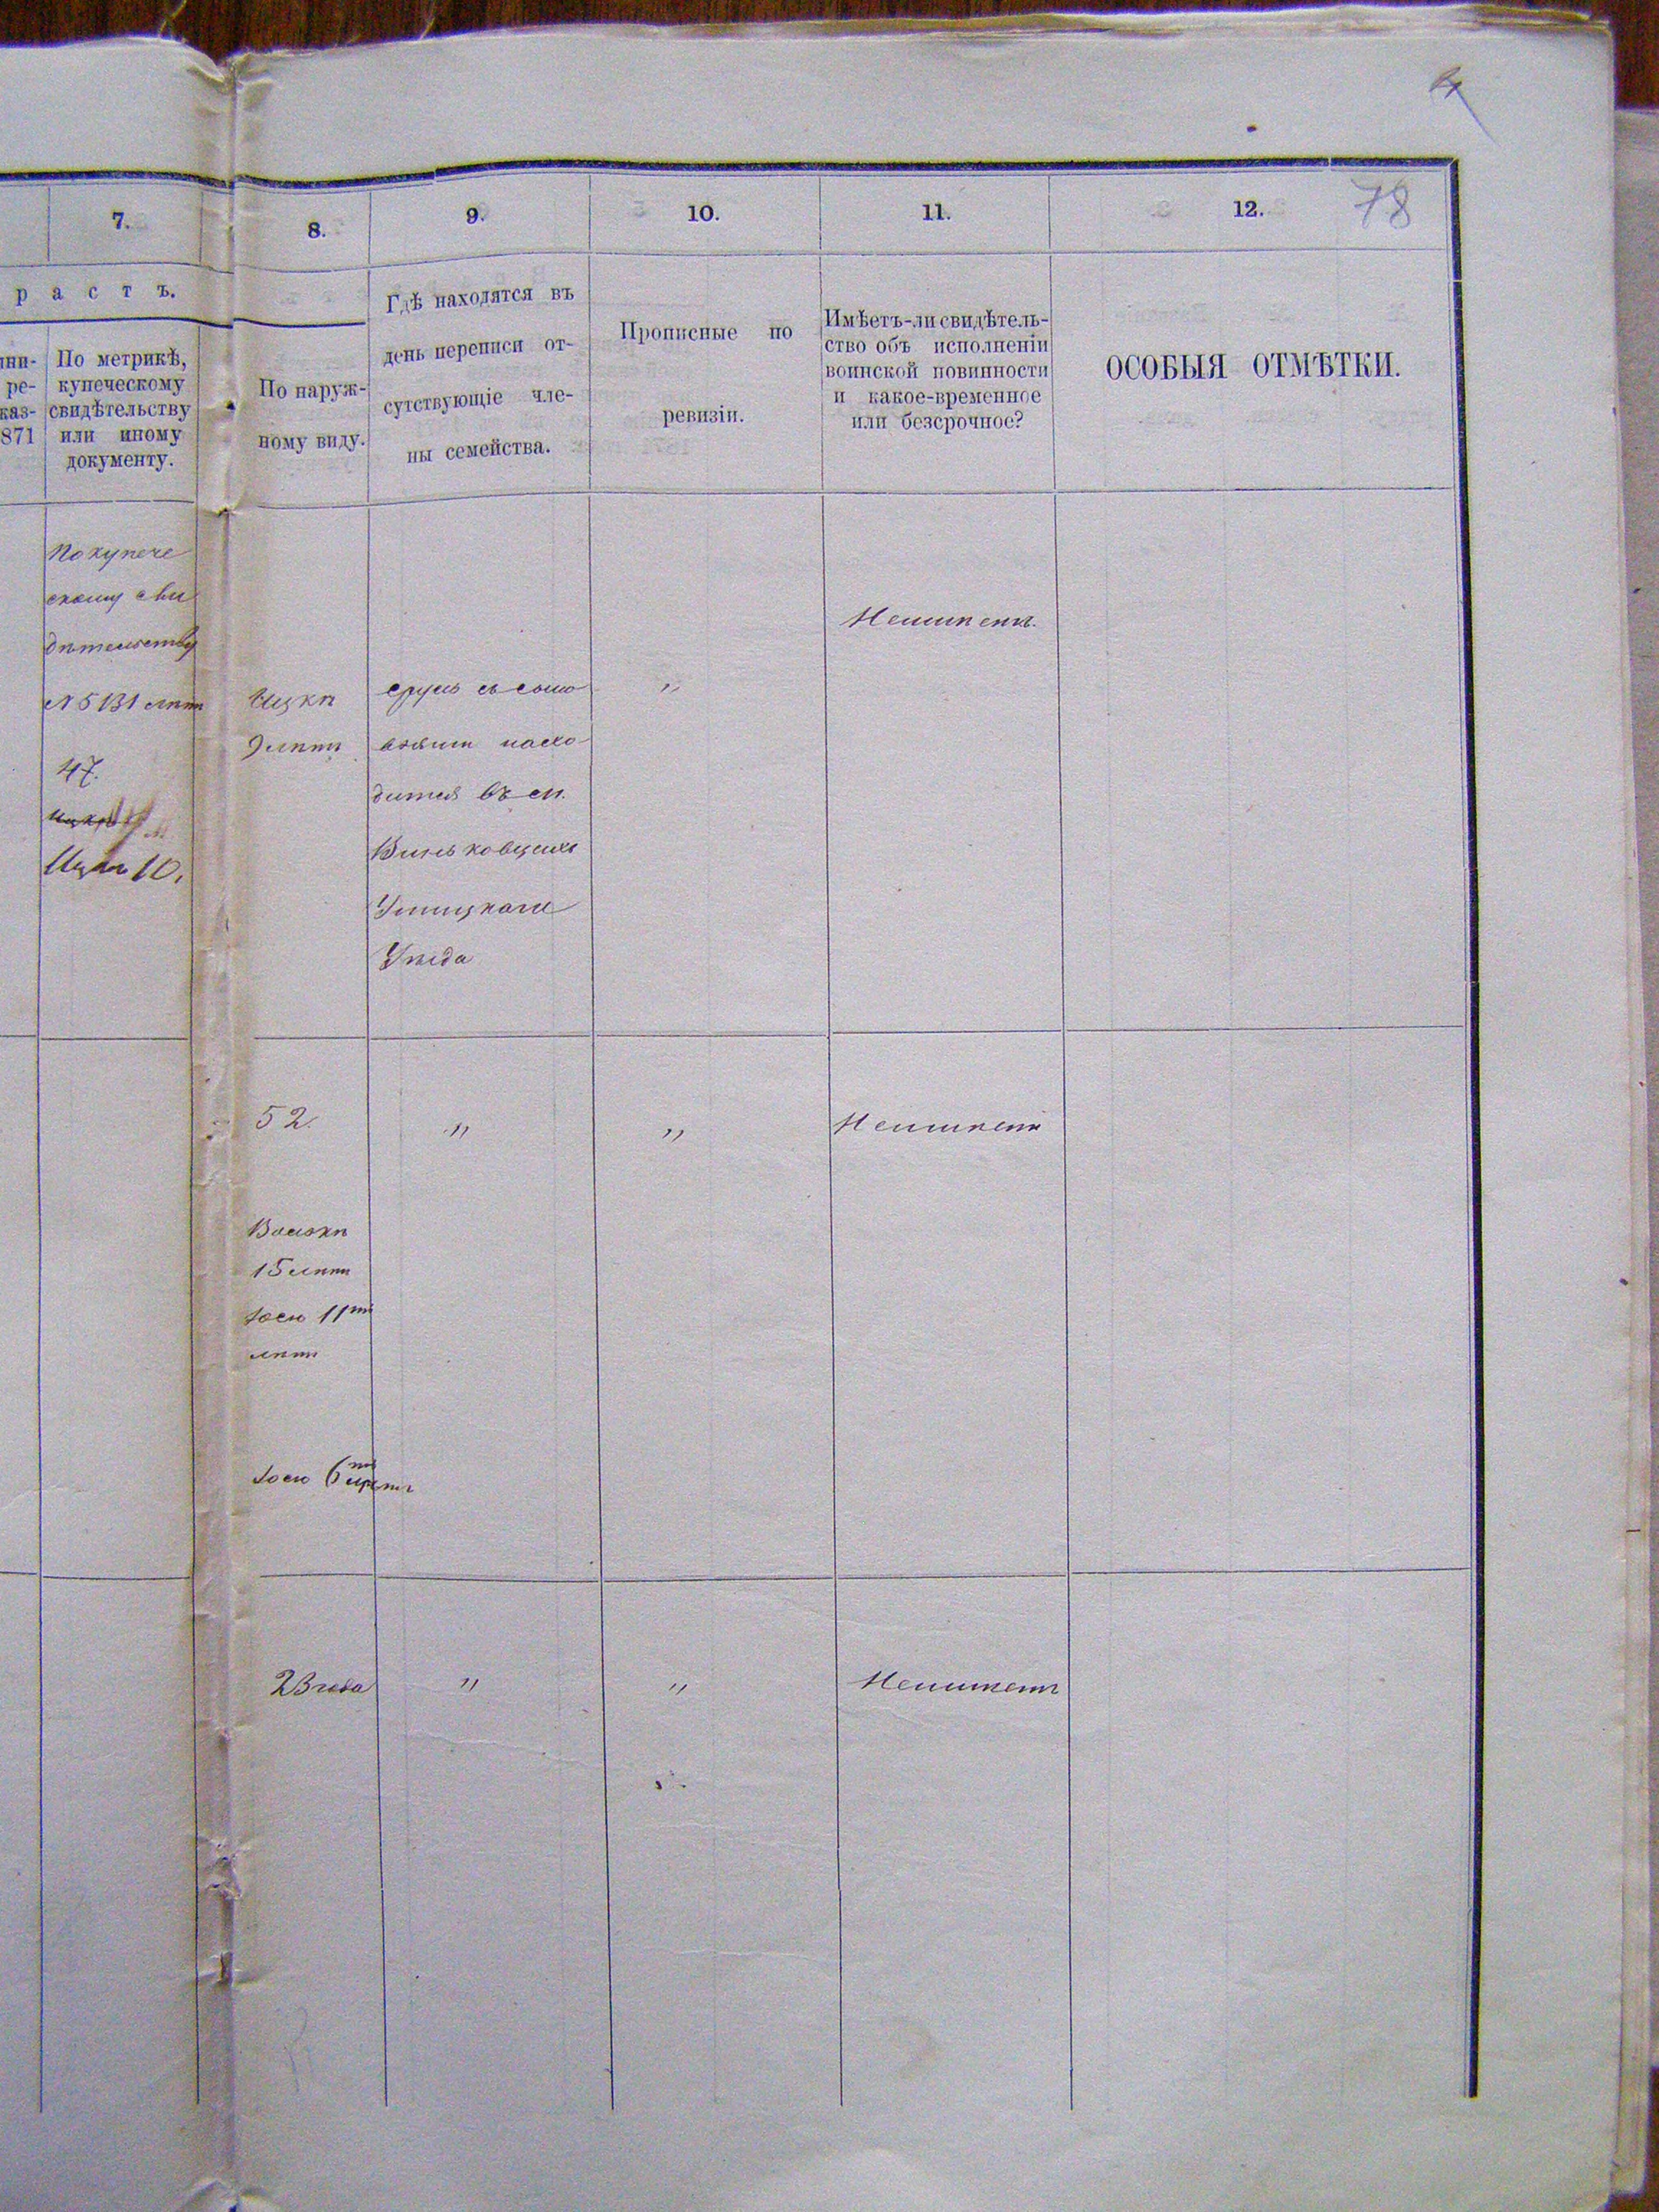 78
7.
8.
9.
10.
11.
12.
р а с т ъ.
ни-
ре-
каз-
871
По метрикѣ,
купеческому
свидѣтельству
или иному
документу.
По наруж-
ному виду.
Гдѣ находятся въ
день переписи от-
сутствующіе чле-
ны семейства.
Прописные по
ревизіи.
Имѣетъ-ли свидѣтель-
ство объ исполненіи
воинской повинности
и какое-временное
или безсрочное?
ОСОБЫЯ ОТМѢТКИ.
По купече
скому сви
дѣтельству
№ 5131 лѣтъ
47.
Ицкъ 10.
Ицкѣ
9 лѣтъ
съ сыно
вьями нахо
дится въ м.
Виньковцахъ
Ушицкаго
Уѣзда
"
Неимѣетъ.
52.
"
"
Неимѣетъ
Волькѣ
15 лѣтъ
11ть
лѣтъ
6ть
23 года
"
"
Неимѣетъ